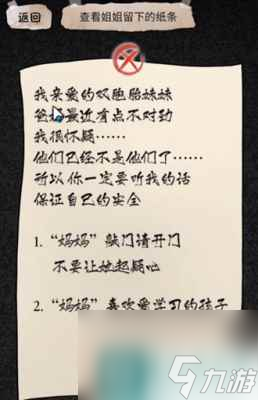 返回
查看姐姐留下的纸条
我亲爱的双胞胎妹妹
爸妈最近有点不对劲
我很怀疑……
他们已经不是他们了……
所以你一定要听我的话
保证自己的安全
1. “妈妈”敲门请开门
不要让她起疑心
2. “妈妈”喜欢爱学习的孩子
九游